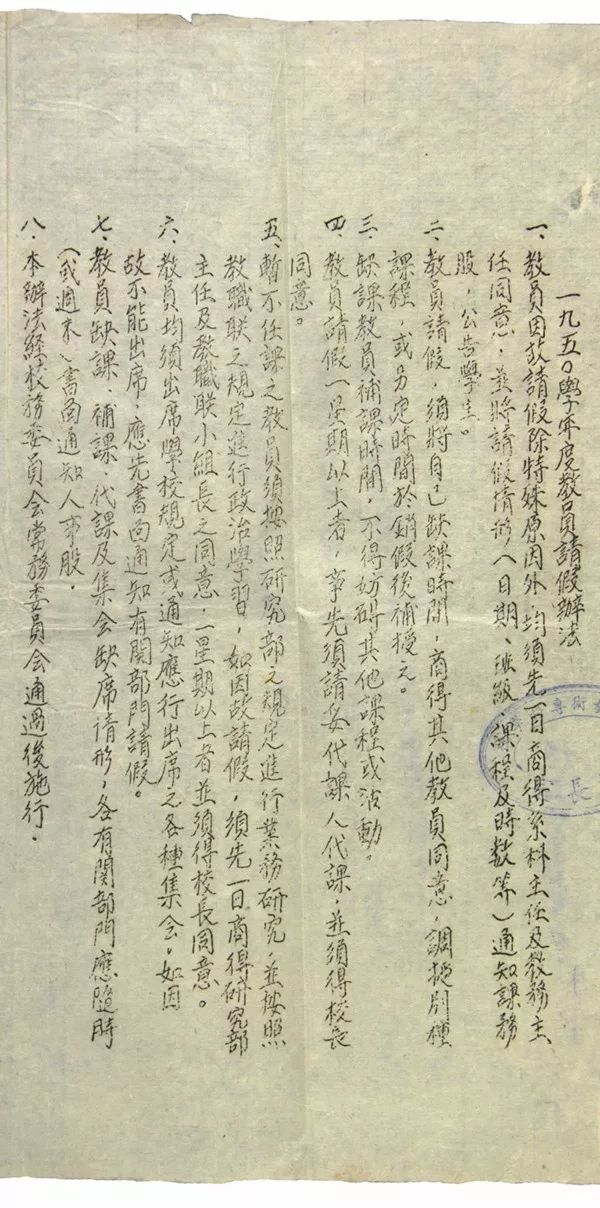 一九五〇學年度教員請假辦法
一、教員因故請假除特殊原因外，均須先一日商得系科主任及教務主
任同意，並將請假情形（日期、班級、課程及時數等）通知課務
股，公告學生。
二、教員請假，須將自己缺課時間，商得其他教員同意，調換別種
課程，或另定時間於銷假後補授之。
三、缺課教員補課時間，不得妨碍其他課程或活動。
四、教員請假一星期以上者，事先須請妥代課人代課，並須得校長
同意。
五、暫不任課之教員須按照研究部之規定進行業務研究，並按照
教職联之規定進行政治學習，如因故請假，須先一日商得研究部
主任及教職联小組長之同意，一星期以上者並須得校長同意。
六、教員均須出席學校規定或通知應行出席之各種集会，如因
故不能出席，應先書面通知有関部門請假。
七、教員缺課、補課、代課及集会缺席情形，各有関部門應隨時
（或週末）書面通知人事股。
八、本辦法経校務委員会常務委員会通過後施行。
術專
長